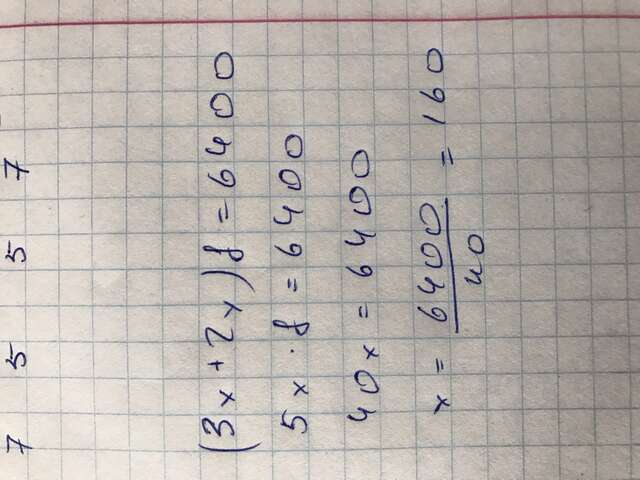 7 5 5 7
(3x + 2x)8 = 6400
5x · 8 = 6400
40x = 6400
x = 6400/40 = 160